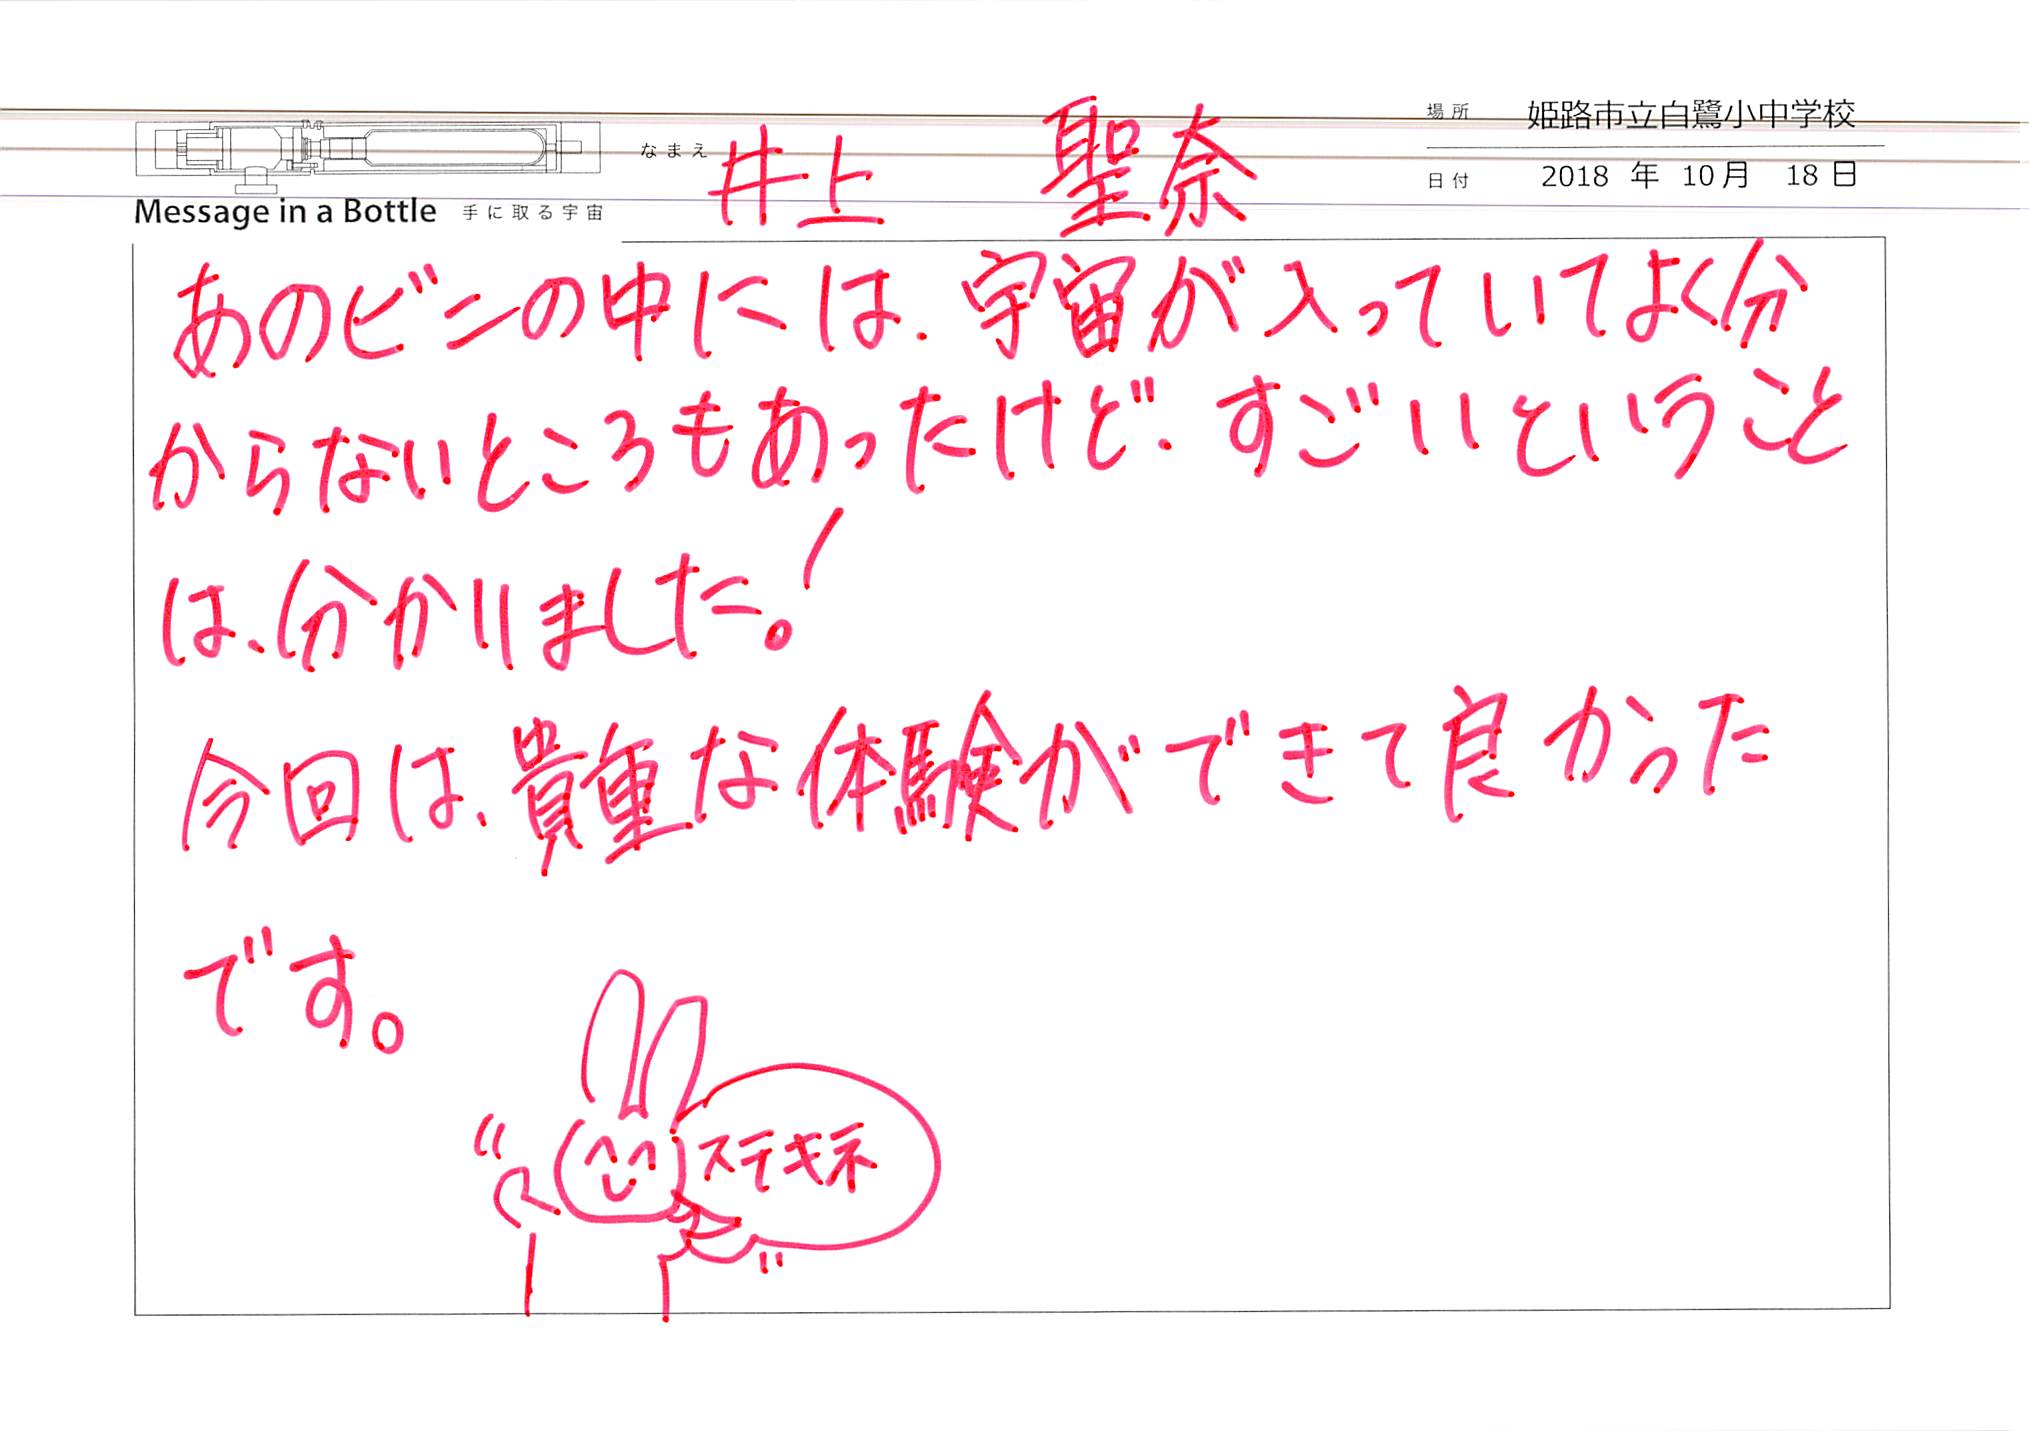 場所 姫路市立白鷺小中学校
なまえ 井上 聖奈
日付 2018 年 10 月 18 日
Message in a Bottle 手に取る宇宙
あのビンの中には、宇宙が入っていてよく分
からないところもあったけど、すごいということ
は、分かりました!
今回は、貴重な体験ができて良かった
です。
ステキネ